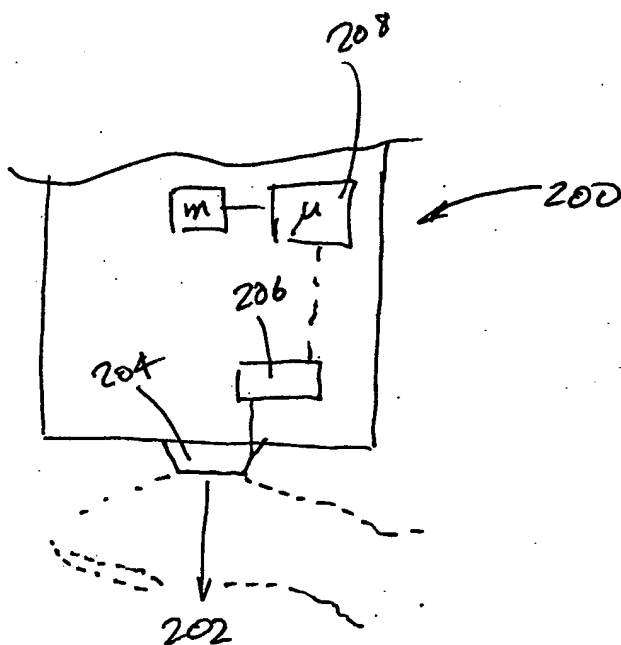 208
m
µ
200
206
204
202